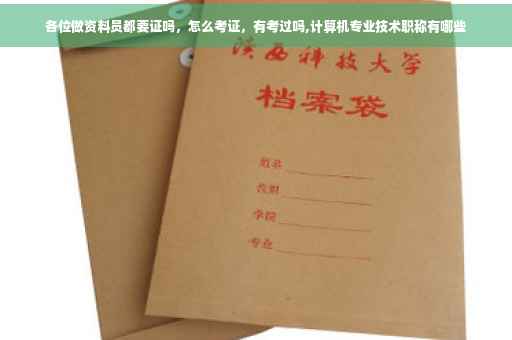 各位做资料员都要证吗，怎么考证，有考过吗,计算机专业技术职称有哪些
陕西科技大学
档案袋
姓名
性别
学院
专业